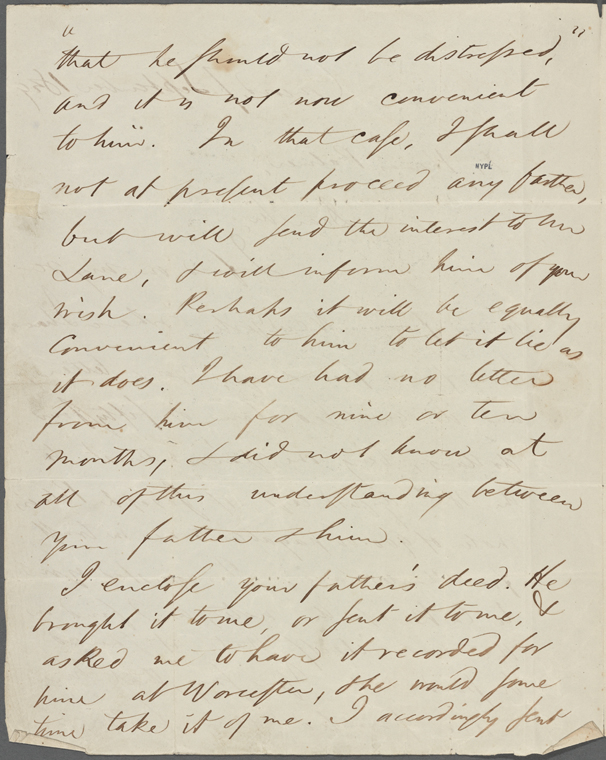 "that he should not be distressed,"
and it is not now convenient
to him. In that case, I shall
NYPL
not at present proceed any farther,
but will send the interest to Mr
Lane, & will inform him of your
wish. Perhaps it will be equally
convenient to him to let it lie as
it does. I have had no letter
from him for nine or ten
months, & did not know at
all of this understanding between
your father & him.
I enclose your father's deed. He
brought it to me, or sent it to me, &
asked me to have it recorded for
him at Worcester, & he would some
time take it of me. I accordingly sent